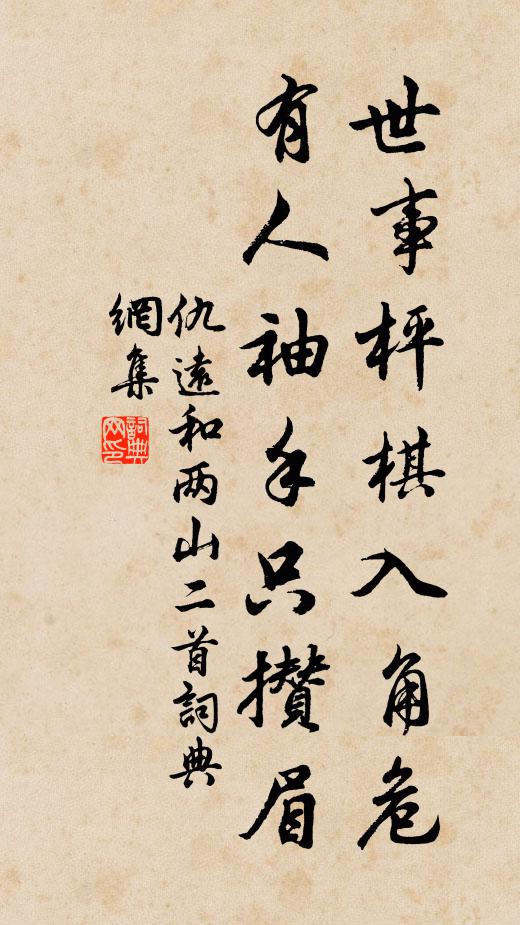 世事枰棋入角危
有人袖手只攢眉
仇遠和两山二首詞典
網集
詞典
网印